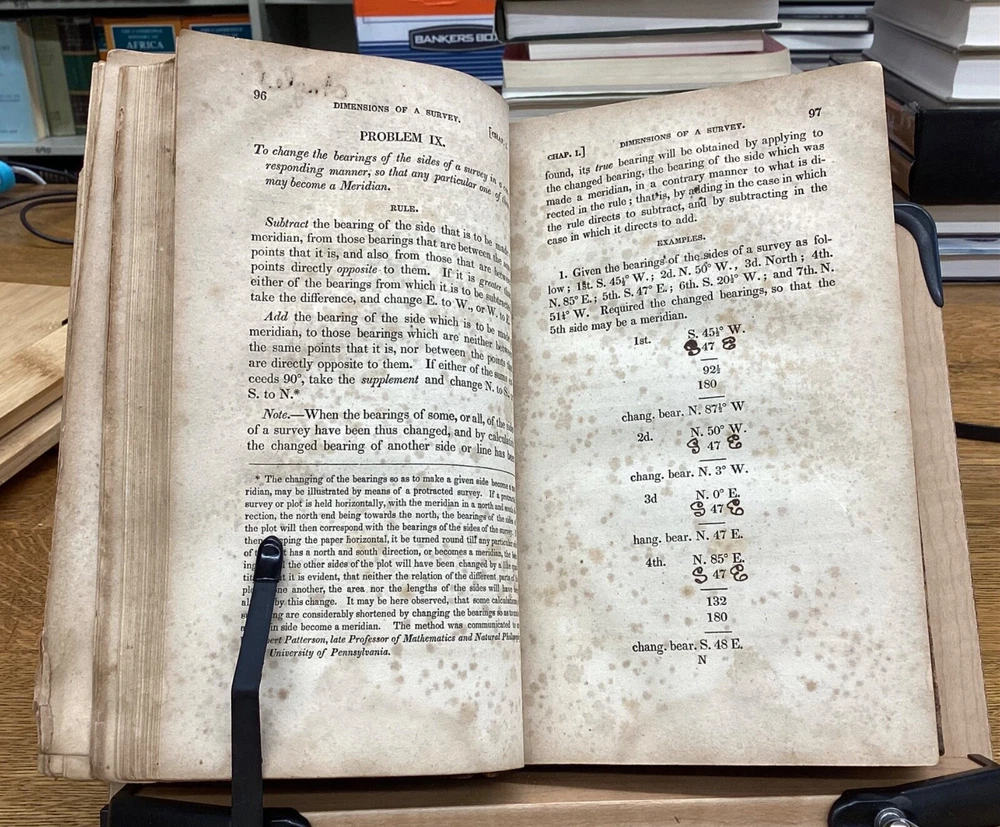 AFRICA
BANKERS BOX
96
DIMENSIONS OF A SURVEY.
PROBLEM IX.
To change the bearings of the sides of a survey in a
responding manner, so that any particular one of
may become a Meridian.
RULE.
Subtract the bearing of the side that is to be made
meridian, from those bearings that are between the
points that it is, and also from those that are
points directly opposite to them. If it is greater
either of the bearings from which it is to be
take the difference, and change E. to W., or W. to E.
Add the bearing of the side which is to be made
meridian, to those bearings which are neither
the same points that it is, nor between the points
are directly opposite to them. If either of the sums
ceeds 90°, take the supplement and change N. to S.
S. to N.*
Note.—When the bearings of some, or all, of the sides
of a survey have been thus changed, and by
the changed bearing of another side or line has
* The changing of the bearings so as to make a given side become a
ridian, may be illustrated by means of a protracted survey. If a
survey or plot is held horizontally, with the meridian in a north and
rection, the north end being towards the north, the bearings of the sides
the plot will then correspond with the bearings of the sides of the survey.
the paper horizontal, it be turned round till any particular
has a north and south direction, or becomes a meridian, the
the other sides of the plot will have been changed by a
it is evident, that neither the relation of the different parts of
one another, the area nor the lengths of the sides will have
by this change. It may be here observed, that some
are considerably shortened by changing the bearings so as
side become a meridian. The method was communicated
Patterson, late Professor of Mathematics and Natural
University of Pennsylvania.
97
CHAP. I.] DIMENSIONS OF A SURVEY.
found, its true bearing will be obtained by applying to
the changed bearing, the bearing of the side which was
made a meridian, in a contrary manner to what is di-
rected in the rule; that is, by adding in the case in which
the rule directs to subtract, and by subtracting in the
case in which it directs to add.
EXAMPLES.
1. Given the bearings of the sides of a survey as fol-
low; 1st. S. 45½° W.; 2d. N. 50° W., 3d. North; 4th.
N. 85° E.; 5th. S. 47° E.; 6th. S. 20½° W.; and 7th. N.
51¼° W. Required the changed bearings, so that the
5th side may be a meridian.
1st. S. 45½° W.
S 47 E
92½
180
chang. bear. N. 87½° W
2d. N. 50° W.
S 47 E
chang. bear. N. 3° W.
3d N. 0° E.
S 47 E
hang. bear. N. 47 E.
4th. N. 85° E.
S 47 E
132
180
chang. bear. S. 48 E.
N